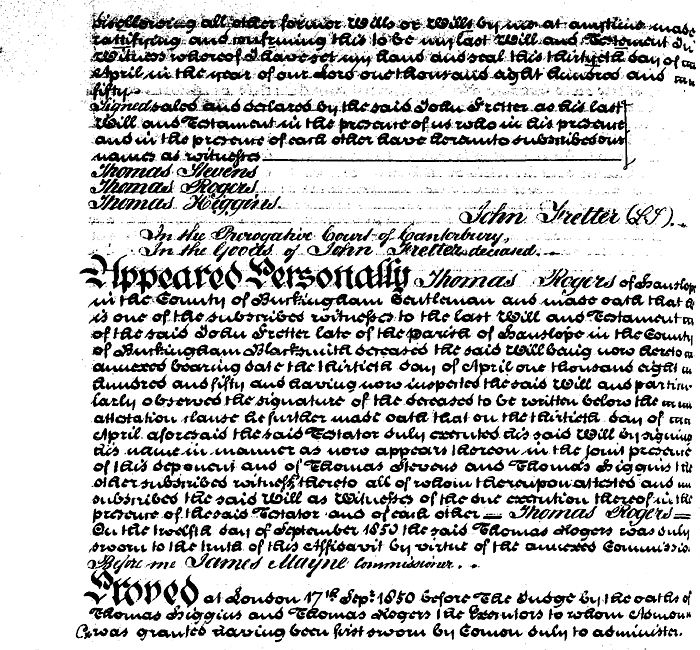 disallowing all other former Wills or Wills by me at anytime made
rattifying and confirming this to be my last Will and Testament In
Witness whereof I have set my hand and seal this thirtyeth day of
April in the year of our Lord one thousand eight hundred and
fifty.
Signed sealed and declared by the said John Fretter as his last
Will and Testament in the presence of us who in his presence
and in the presence of each other have hereunto subscribed our
names as witnesses
Thomas Stevens
Thomas Rogers
Thomas Higgins.
John Fretter (LS)
In the Prerogative Court of Canterbury,
In the Goods of John Fretter deceased.
Appeared Personally Thomas Rogers of Hanslope
in the County of Buckingham Gentleman and made oath that he
is one of the subscribed witnesses to the last Will and Testament
of the said John Fretter late of the Parish of Hanslope in the County
of Buckingham Blacksmith deceased the said Will being now hereto
annexed bearing date the thirtieth day of April one thousand eight
hundred and fifty and having now inspected the said Will and particu-
larly observed the signature of the deceased to be written below the
attestation clause he further made oath that on the thirtieth day of
April aforesaid the said Testator duly executed his said Will by signing
his name in manner as now appears thereon in the joint presence
of this deponent and of Thomas Stevens and Thomas Higgins the
other subscribed witness thereto all of whom thereupon attested and
subscribed the said Will as Witnesses of the due execution thereof in the
presence of the said Testator and of each other — Thomas Rogers —
On the twelfth day of September 1850 the said Thomas Rogers was duly
sworn to the truth of this Affidavit by virtue of the annexed Commission
Before me James Mayne Commissioner.
Proved at London 17th Sept. 1850 before the Judge by the oaths of
Thomas Higgins and Thomas Rogers the Executors to whom Admon
was granted having been first sworn by Comon duly to administer.